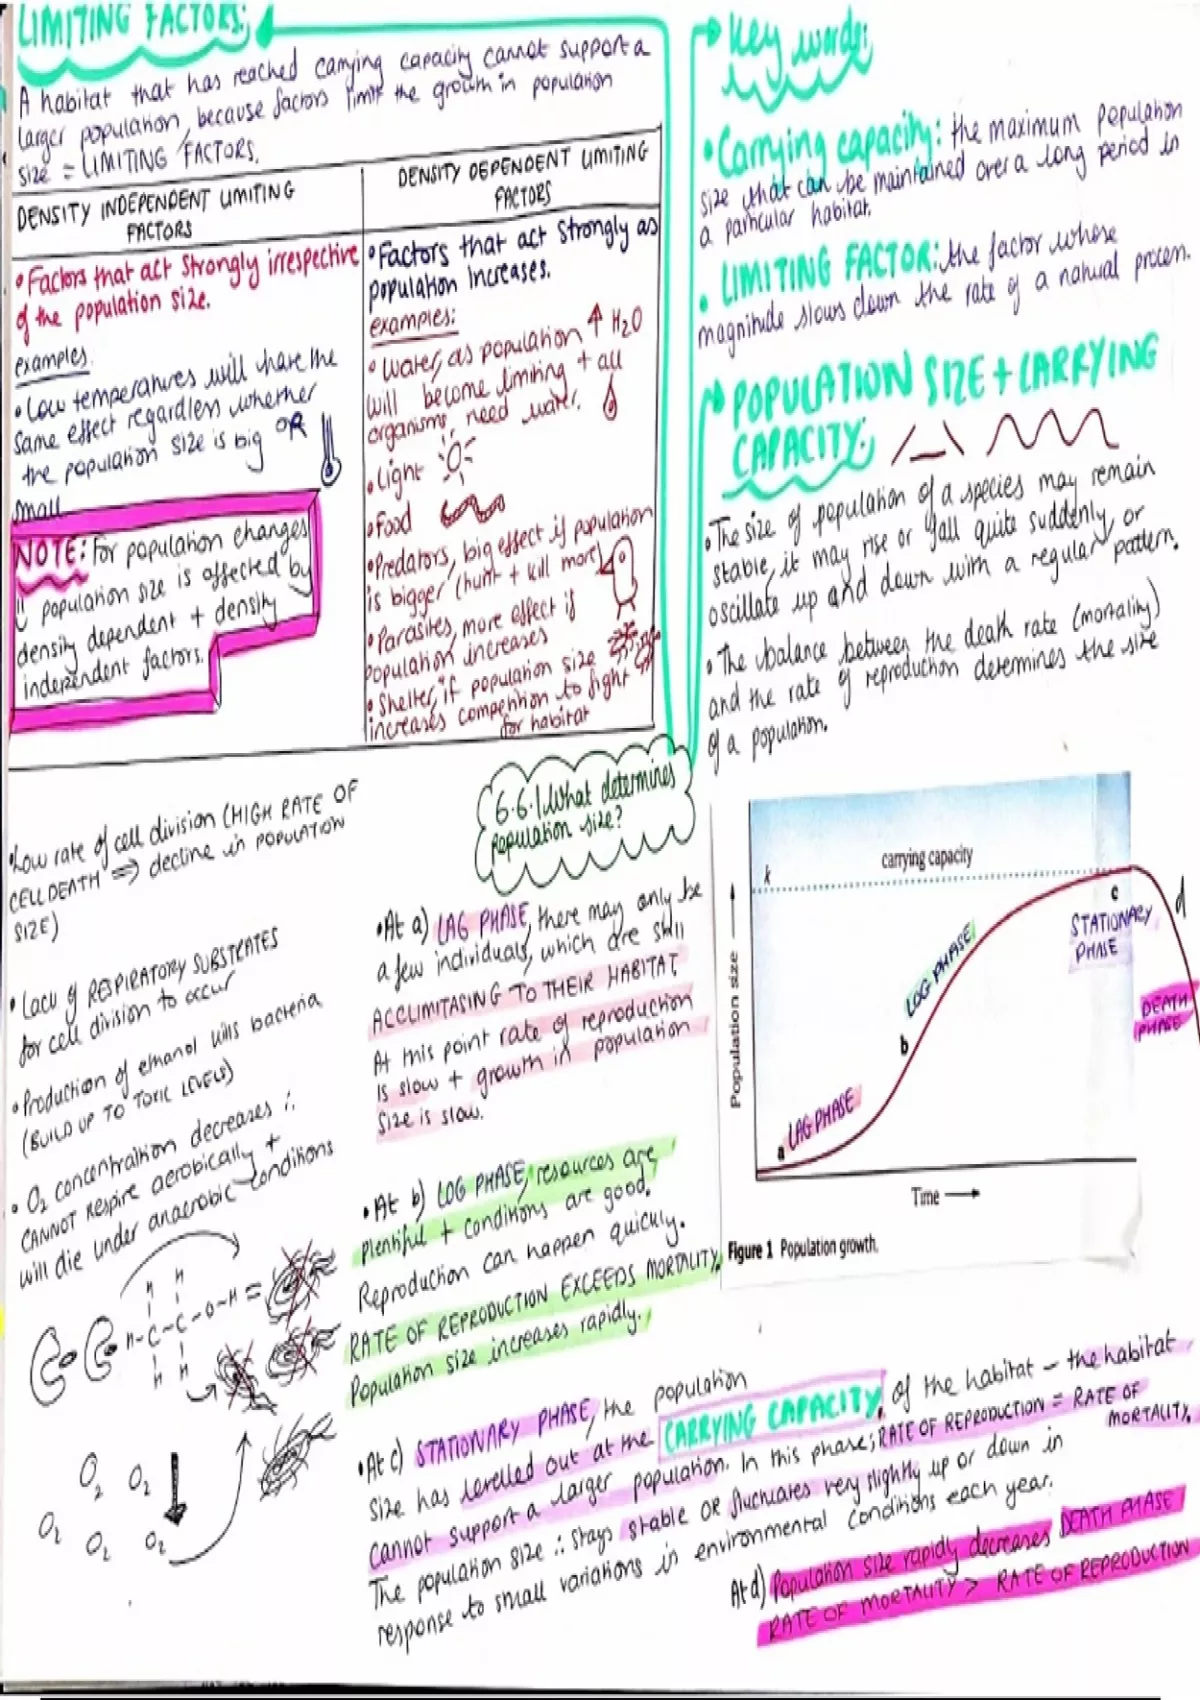 LIMITING FACTORS:
A habitat that has reached carrying capacity cannot support a
larger population, because factors limit the growth in population
size = LIMITING FACTORS.
DENSITY INDEPENDENT LIMITING
FACTORS
• Factors that act strongly irrespective
of the population size.
examples.
• Low temperatures will have the
same effect regardless whether
the population size is big OR
small
NOTE: For population changes
population size is affected by
density dependent + density
independent factors.
DENSITY DEPENDENT LIMITING
FACTORS
• Factors that act strongly as
population increases.
examples:
• Water, as population ↑ H2O
will become limiting + all
organisms need water.
• Light
• Food
• Predators, big effect if population
is bigger (hunt + kill more)
• Parasites, more effect if
population increases
• Shelter, if population size
increases competition to fight
for habitat
Key words:
• Carrying capacity: the maximum population
size that can be maintained over a long period in
a particular habitat.
• LIMITING FACTOR: the factor whose
magnitude slows down the rate of a natural process.
POPULATION SIZE + CARRYING
CAPACITY:
• The size of population of a species may remain
stable, it may rise or fall quite suddenly, or
oscillate up and down with a regular pattern.
• The balance between the death rate (mortality)
and the rate of reproduction determines the size
of a population.
6.6.1 What determines
population size?
• Low rate of cell division (HIGH RATE OF
CELL DEATH ⇒ decline in POPULATION
SIZE)
• Lack of RESPIRATORY SUBSTRATES
for cell division to occur
• Production of ethanol kills bacteria
(BUILD UP TO TOXIC LEVELS)
• O2 concentration decreases ∴
CANNOT respire aerobically +
will die under anaerobic conditions
H H
H-C-C-O-H =
H H
O2 O2
O2 O2 O2
• At a) LAG PHASE, there may only be
a few individuals, which are still
ACCLIMITASING TO THEIR HABITAT
At this point rate of reproduction
is slow + growth in population
size is slow.
• At b) LOG PHASE, resources are
plentiful + conditions are good.
Reproduction can happen quickly.
RATE OF REPRODUCTION EXCEEDS MORTALITY.
Population size increases rapidly.
k
carrying capacity
Population size
c
STATIONARY
PHASE
d
DEATH
PHASE
LOG PHASE
b
a
LAG PHASE
Time
Figure 1 Population growth.
• At c) STATIONARY PHASE, the population
size has levelled out at the CARRYING CAPACITY of the habitat - the habitat
cannot support a larger population. In this phase; RATE OF REPRODUCTION = RATE OF
MORTALITY.
The population size ∴ stays stable OR fluctuates very slightly up or down in
response to small variations in environmental conditions each year.
At d) Population size rapidly decreases DEATH PHASE
RATE OF MORTALITY > RATE OF REPRODUCTION